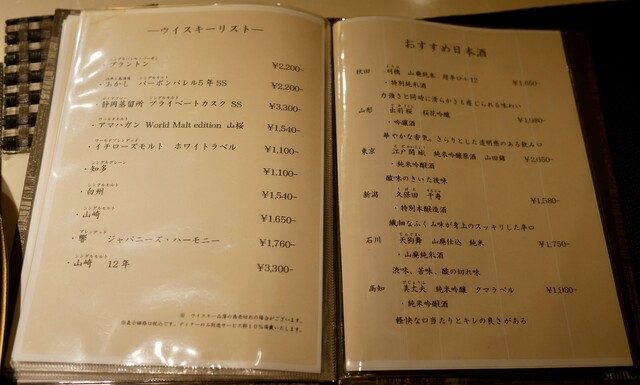 ―ウイスキーリスト―
シングルバーレル・バーボン
・ブラントン ¥2,200-
シングルモルト
・あかし バーボンバレル5年 SS ¥2,200-
シングルモルト
・静岡蒸留所 プライベートカスク SS ¥3,300-
ワールドモルト
・アマハガン World Malt edition 山桜 ¥1,540-
ワールドブレンデッド
・イチローズモルト ホワイトラベル ¥1,100-
シングルグレーン
・知多 ¥1,100-
シングルモルト
・白州 ¥1,540-
シングルモルト
・山崎 ¥1,650-
ブレンデッド
・響 ジャパニーズ・ハーモニー ¥1,760-
シングルモルト
・山崎 12年 ¥3,300-
※ ウイスキー品薄の為売切れの場合がございます。
表示の価格は税込です。ディナーのみ別途サービス料10%頂戴いたします。
おすすめ日本酒
秋田 刈穂 山廃純米 超辛口+12 ¥1,650-
・特別純米酒
力強さと同時に滑らかさも感じられる味わい
山形 出羽桜 桜花吟醸 ¥1,980-
・吟醸酒
華やかな香気、さらりとした透明感のある飲み口
東京 江戸開城 純米吟醸原酒 山田錦 ¥2,050-
・純米吟醸酒
酸味のきいた後味
新潟 久保田 千寿 ¥1,580-
・特別本醸造酒
繊細なふくみ味が身上のスッキリした辛口
石川 天狗舞 山廃仕込 純米 ¥1,750-
・山廃純米酒
渋味、苦味、酸の切れ味
高知 美丈夫 純米吟醸 タマラベル ¥1,980-
・純米吟醸酒
軽快な口当たりとキレの良さがある